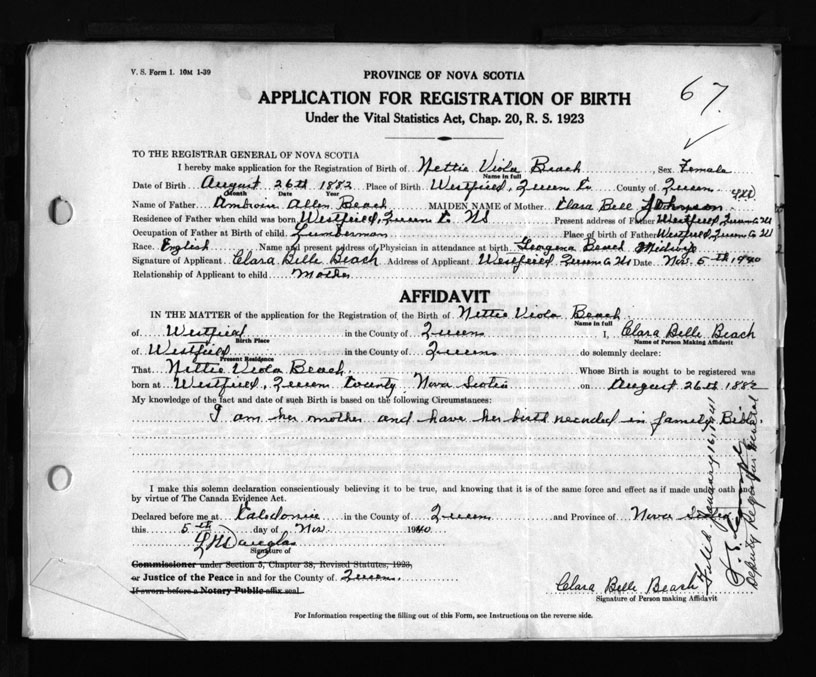 V. S. Form 1. 10M 1-39
67.
PROVINCE OF NOVA SCOTIA
APPLICATION FOR REGISTRATION OF BIRTH
Under the Vital Statistics Act, Chap. 20, R. S. 1923
TO THE REGISTRAR GENERAL OF NOVA SCOTIA
I hereby make application for the Registration of Birth of Nettie Viola Beach, Sex Female
Name in full
Date of Birth August 26th 1882 Place of Birth Westfield, Queen Co County of Queen
Month Date Year
Name of Father Allen Beach MAIDEN NAME of Mother Clara Bell Johnson
Residence of Father when child was born Westfield, Queen C NS Present address of Father Westfield, Queen Co NS
Occupation of Father at Birth of child. Lumberman Place of birth of Father Westfield, Queen Co NS
Race. English Name and present address of Physician in attendance at birth Midwife
Signature of Applicant Clara Belle Beach Address of Applicant Westfield Queen Co NS Date Nov. 5th 1940
Relationship of Applicant to child Mother
AFFIDAVIT
IN THE MATTER of the application for the Registration of the Birth of Nettie Viola Beach
Name in full
of Westfield in the County of Queens I, Clara Belle Beach
Birth Place Name of Person Making Affidavit
of Westfield in the County of Queens do solemnly declare:
Present Residence
That Nettie Viola Beach Whose Birth is sought to be registered was
born at Westfield, Queen County Nova Scotia on August 26th 1882
My knowledge of the fact and date of such Birth is based on the following Circumstances:
I am her mother and have her birth recorded in family Bible.
I make this solemn declaration conscientiously believing it to be true, and knowing that it is of the same force and effect as if made under oath and
by virtue of The Canada Evidence Act.
Declared before me at Caledonia in the County of Queen and Province of Nova Scotia
this 5th day of Nov. 1940
Douglas
Signature of
Commissioner under Section 5, Chapter 38, Revised Statutes, 1923,
or Justice of the Peace in and for the County of Queen.
If sworn before a Notary Public affix seal.
Clara Belle Beach
Signature of Person making Affidavit
For Information respecting the filling out of this Form, see Instructions on the reverse side.
Filed January 16, 1941
Deputy Registrar General